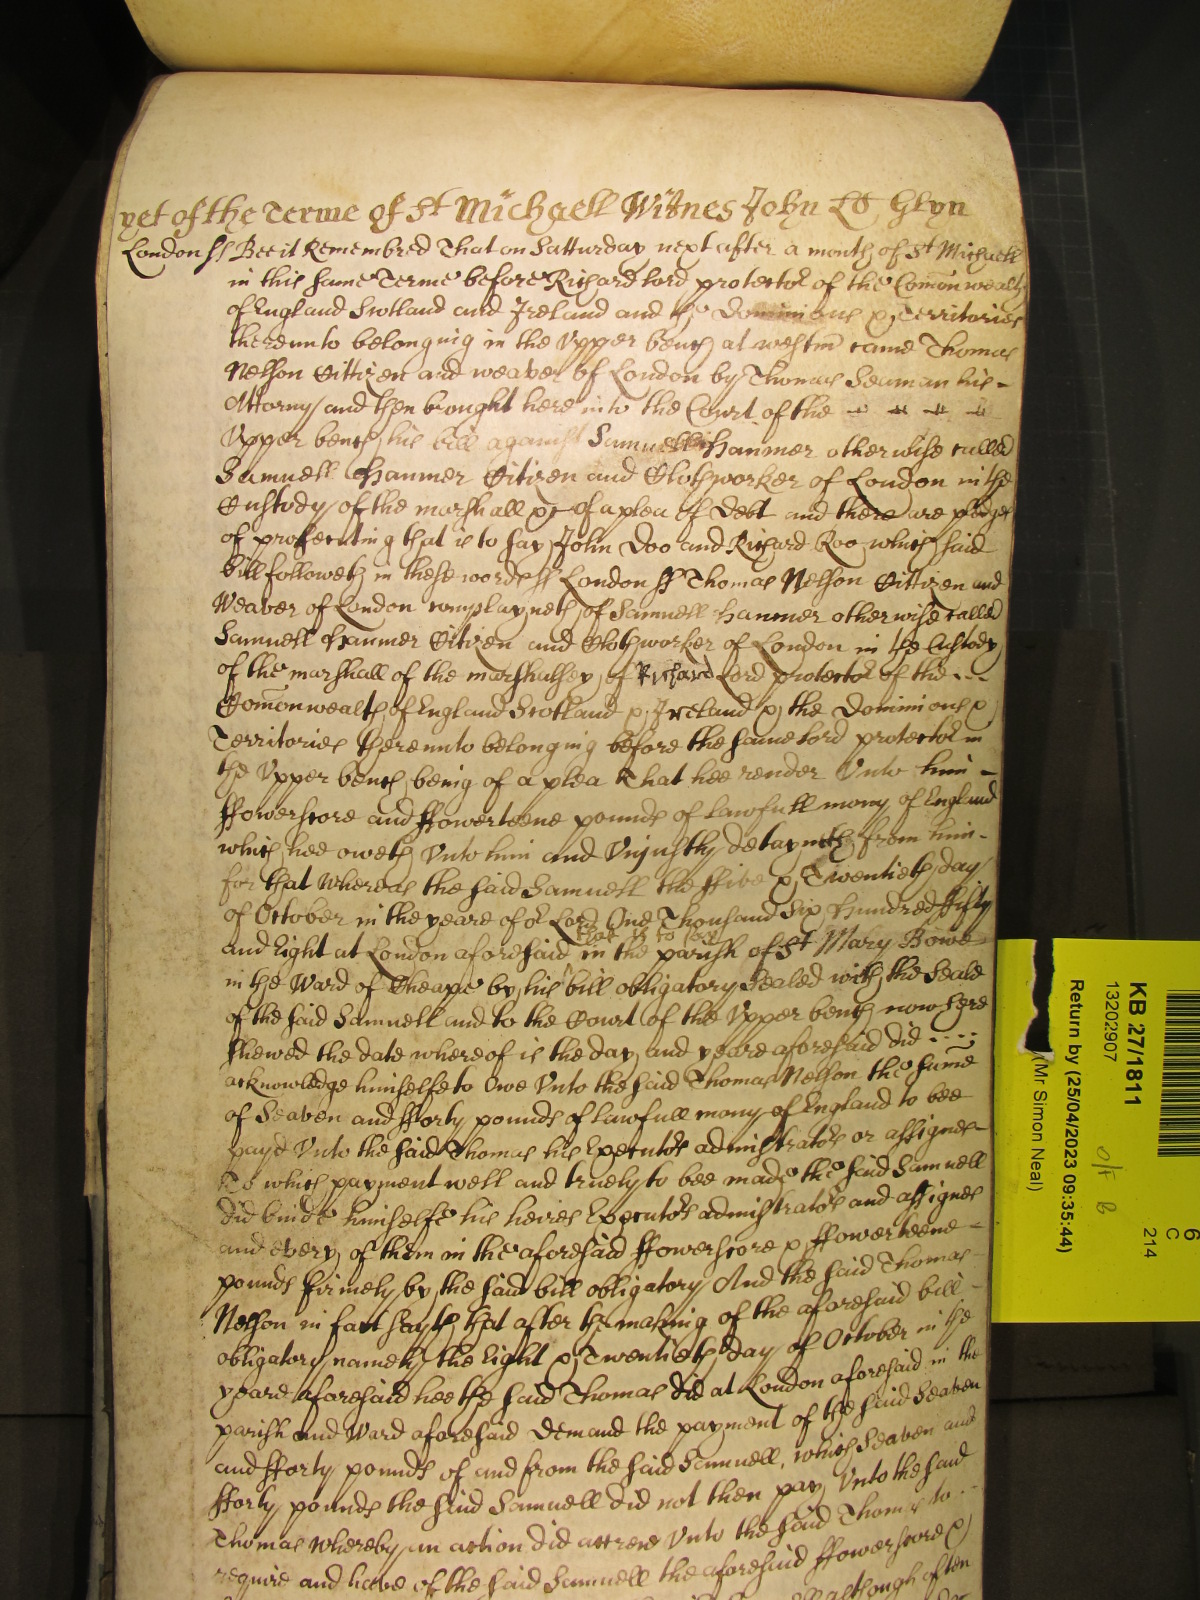 yet of the Terme of St Michaell Witnes John Lo Glyn
London ss Bee it Remembred That on Satturday next after a month of St Michaell
in this same Terme before Richard Lord protector of the Comonwealth
of England Scotland and Ireland and the Dominions & Territories
thereunto belonging in the Upper bench at westm came Thomas
Nelson Cittizen and weaver of London by Thomas Seaman his -
Attorny and then brought here into the Court of the
Upper bench his bill against Samuell Hanmer otherwise called
Samuell Hanmer Citizen and Clothworker of London in the
Custody of the marshall &c of a plea of Debt and there are pledges
of prosecuting that is to say John Doo and Richard Roo which said
bill followeth in these words ss London ss Thomas Nelson Cittizen and
Weaver of London complayneth of Samuell Hanmer otherwise called
Samuell Hanmer Citizen and Clothworker of London in the Custody
of the marshall of the marshalsey of Richard Lord protector of the ---
Comonwealth of England Scotland & Ireland & the Dominions &
Territories thereunto belonging before the same Lord protector in
the Upper bench being of a plea That hee render Unto him -
ffowerscore and ffowerteene pounds of lawfull mony of England
which hee oweth Unto him and Unjustly detayneth from him -
for that Whereas the said Samuell the ffive & Twentieth day
of October in the yeare of or Lord One Thousand Six Hundred ffifty
that is to say
and Eight at London aforesaid in the parish of St Mary Bowe
in the Ward of Cheape by his bill obligatory Sealed with the Seale
of the said Samuell and to the Court of the Upper bench now here
shewed the date whereof is the day and yeare aforesaid did
acknowledge himselfe to Owe Unto the said Thomas Nelson the sume
of Seaven and fforty pounds of lawfull mony of England to bee
payd Unto the said Thomas his Executors administrators or assignes
To which payment well and truely to bee made the said Samuell
did binde himselfe his heires Executors administrators and assignes
and every of them in the aforesaid ffowerscore & ffowerteene -
pounds firmely by the said bill obligatory And the said Thomas
Nelson in fact sayth that after the making of the aforesaid bill
obligatory namely the Eight & Twentieth day of October in the
yeare aforesaid hee the said Thomas did at London aforesaid in the
parish and Ward aforesaid Demand the payment of the said Seaven
and fforty pounds of and from the said Samuell, which Seaven and
fforty pounds the said Samuell did not then pay Unto the said
Thomas Whereby an action did accrew Unto the said Thomas to
require and have of the said Samuell the aforesaid ffowerscore &
although often
KB 27/1811
13202907
Return by (25/04/2023 09:35:44)
(Mr Simon Neal)
6
C
214